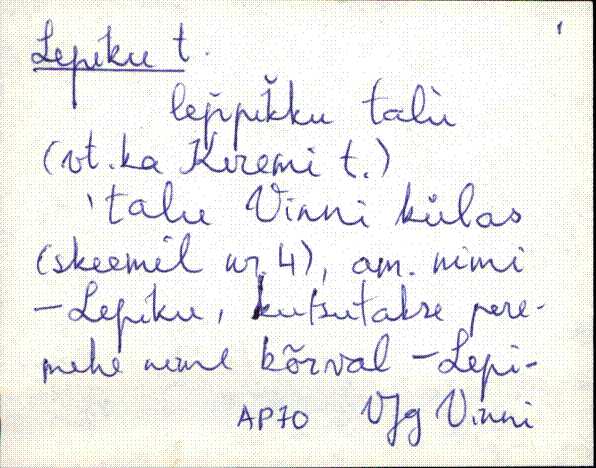 Lepiku t.
lep̆pĭkku talù
(vt. ka Kuremi t.)
'talu Vinni külas
(skeemil nr. 4), am. nimi
– Lepiku, kutsutakse pere-
mehe nime kõrval – Lepi-
AP70 VJg Vinni